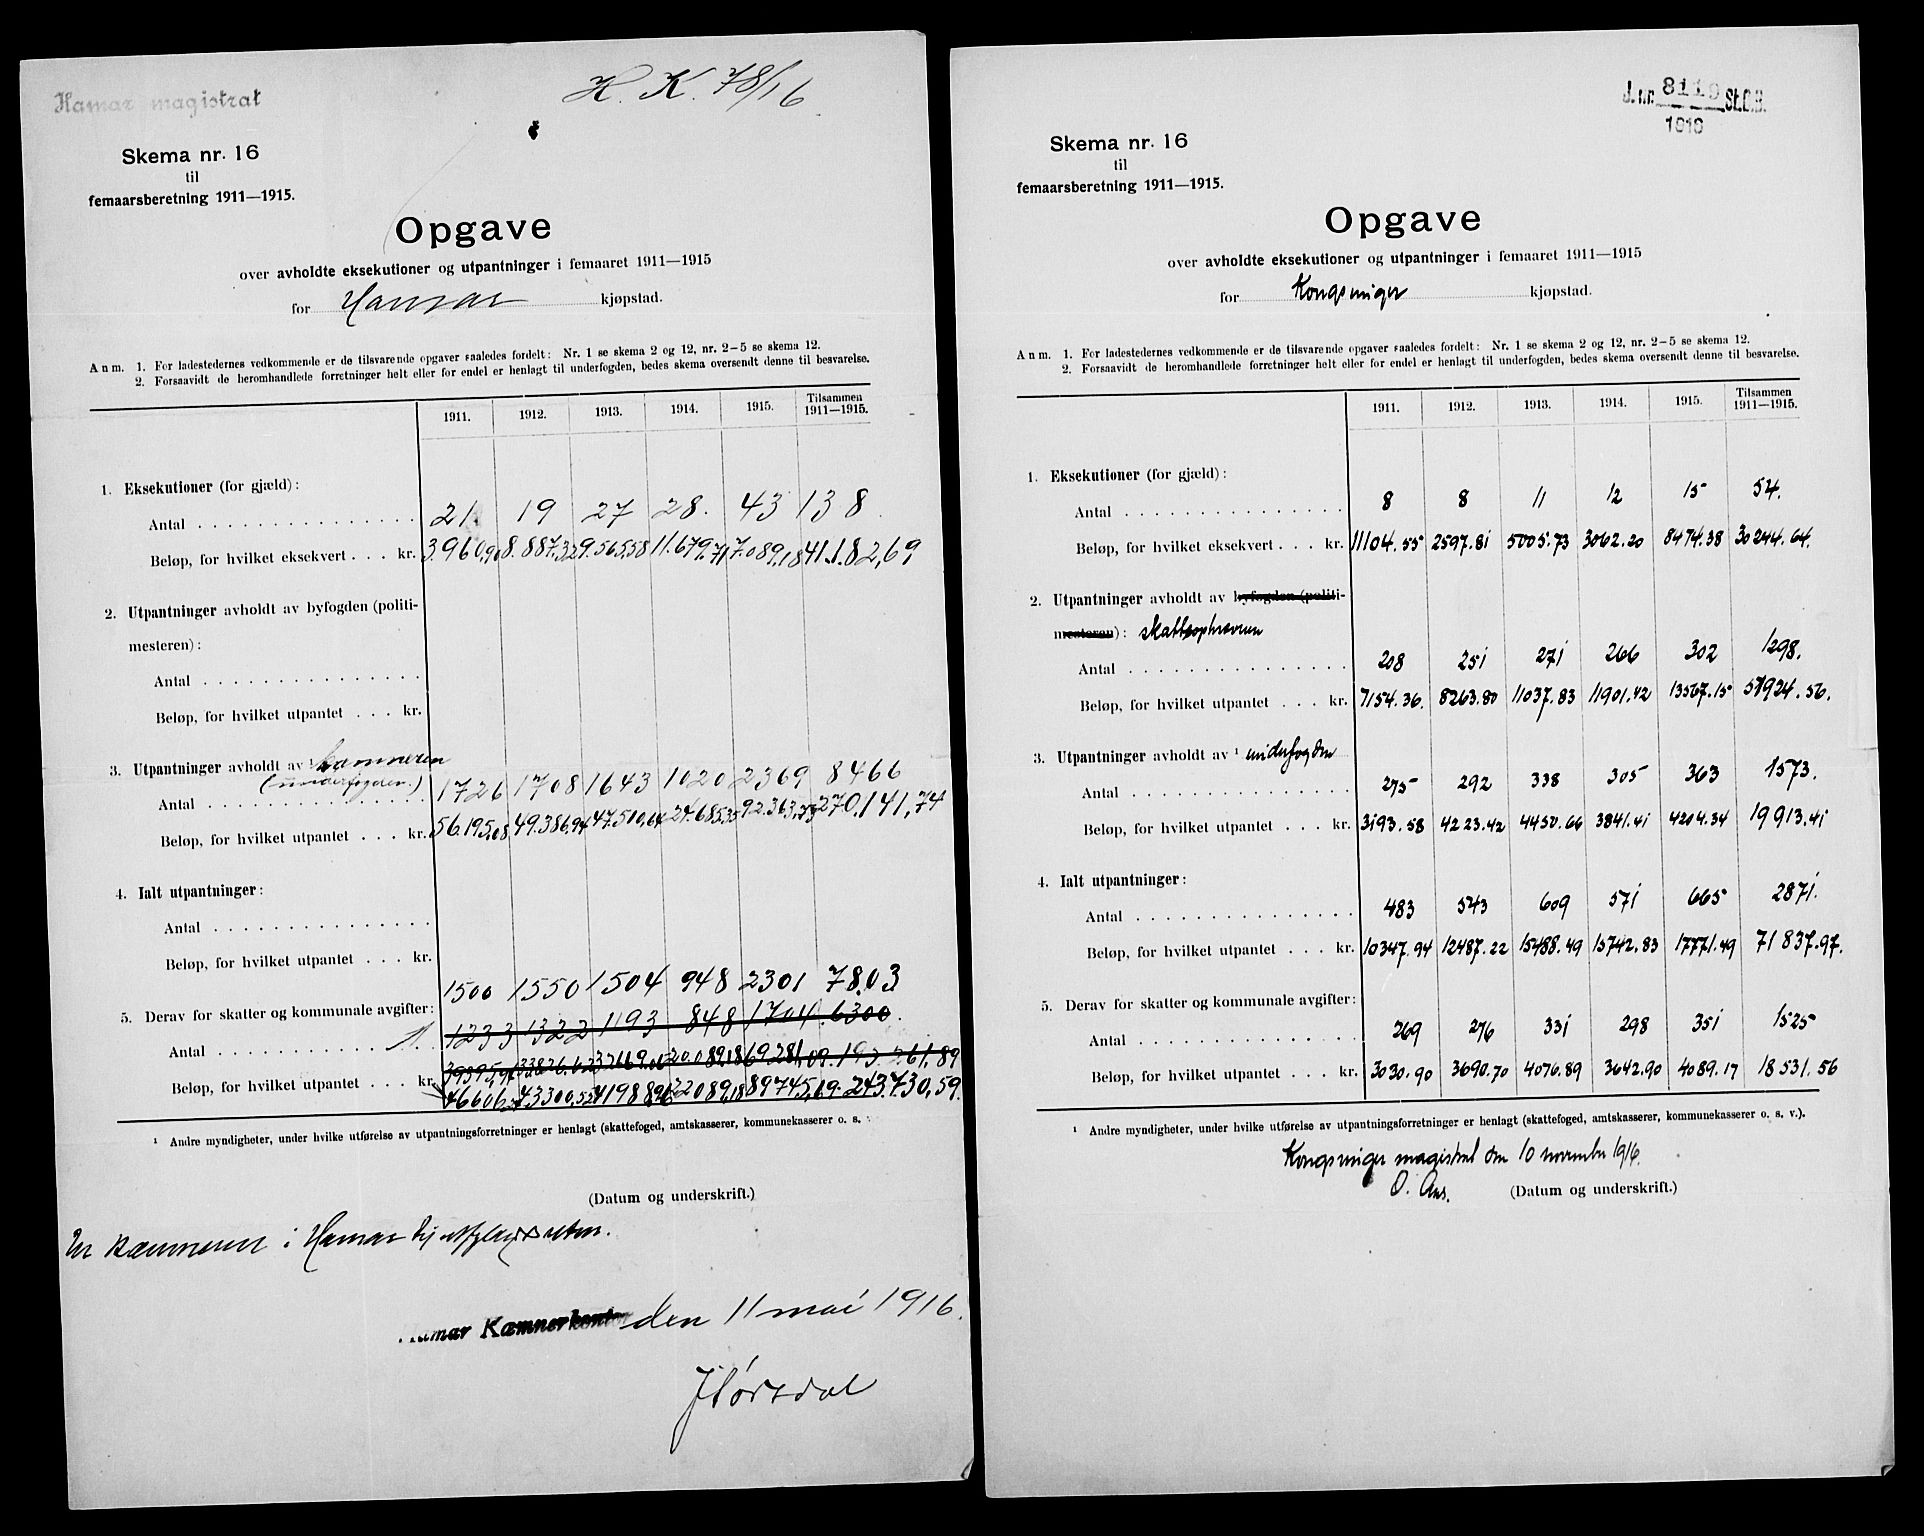 Hamar magistrat
H. K. 78/16
Skema nr. 16
til
femaarsberetning 1911—1915.
Opgave
over avholdte eksekutioner og utpantninger i femaaret 1911—1915
for Hamar kjøpstad.
Anm. 1. For ladestedernes vedkommende er de tilsvarende opgaver saaledes fordelt: Nr. 1 se skema 2 og 12, nr. 2—5 se skema 12.
2. Forsaavidt de heromhandlede forretninger helt eller for endel er henlagt til underfogden, bedes skema oversendt denne til besvarelse.
1911. 1912. 1913. 1914. 1915. Tilsammen 1911—1915.
1. Eksekutioner (for gjæld):
Antal 21 19 27 28. 43 138
Beløp, for hvilket eksekvert . . . kr. 3.960,90 8.887,32 9.565,58 11.679,71 7.089,18 41.182,69
2. Utpantninger avholdt av byfogden (politi-
mesteren):
Antal
Beløp, for hvilket utpantet . . . kr.
3. Utpantninger avholdt av ¹ kæmneren
(underfogden.)
Antal 1726 1708 1643 1020 2369 8466
Beløp, for hvilket utpantet . . . kr. 56.195,08 49.386,94 47.510,64 24.685,35 92.363,73 270.141,74
4. Ialt utpantninger:
Antal
Beløp, for hvilket utpantet . . . kr.
1500 1550 1504 948 2301 7803
5. Derav for skatter og kommunale avgifter:
Antal 1233 1322 1193 848 1704 6300
Beløp, for hvilket utpantet . . . kr.
43300,52 41988,96 22089,18 89745,69 243.730,59
¹ Andre myndigheter, under hvilke utførelse av utpantningsforretninger er henlagt (skattefoged, amtskasserer, kommunekasserer o. s.
(Datum og underskrift.)
kæmneren i Hamar
Hamar Kæmnerkontor den 11 mai 1916.
J.nr. 8119 St.C.B.
1916
Skema nr. 16
til
femaarsberetning 1911—1915.
Opgave
over avholdte eksekutioner og utpantninger i femaaret 1911—1915
for Kongsvinger kjøpstad.
Anm. 1. For ladestedernes vedkommende er de tilsvarende opgaver saaledes fordelt: Nr. 1 se skema 2 og 12, nr. 2—5 se skema 12.
2. Forsaavidt de heromhandlede forretninger helt eller for endel er henlagt til underfogden, bedes skema oversendt denne til besvarelse.
1911. 1912. 1913. 1914. 1915. Tilsammen 1911—1915.
1. Eksekutioner (for gjæld):
Antal 8 8 11 12 15 54.
Beløp, for hvilket eksekvert . . . kr. 11104.55 2597.81 5005.73 3062.20 8474.38 30244.64.
2. Utpantninger avholdt av byfogden (politi-
mesteren): skatteopkræveren
Antal 208 251 271 266 302 1298.
Beløp, for hvilket utpantet . . . kr. 7154.36. 8263.80 11037.83 11901.42 13567.15 51924.56.
3. Utpantninger avholdt av ¹ underfogden
Antal 275 292 338 305 363 1573.
Beløp, for hvilket utpantet . . . kr. 3193.58 4223.42 4450.66 3841.41 4204.34 19913.41
4. Ialt utpantninger:
Antal 483 543 609 571 665 2871.
Beløp, for hvilket utpantet . . . kr. 10347.94 12487.22 15488.49 15742.83 17771.49 71837.97.
5. Derav for skatter og kommunale avgifter:
Antal 269 276 331 298 351 1525
Beløp, for hvilket utpantet . . . kr. 3030.90 3690.70 4076.89 3642.90 4089.17 18531.56
¹ Andre myndigheter, under hvilke utførelse av utpantningsforretninger er henlagt (skattefoged, amtskasserer, kommunekasserer o. s. v.).
Kongsvinger magistrat den 10 november 1916.
(Datum og underskrift.)